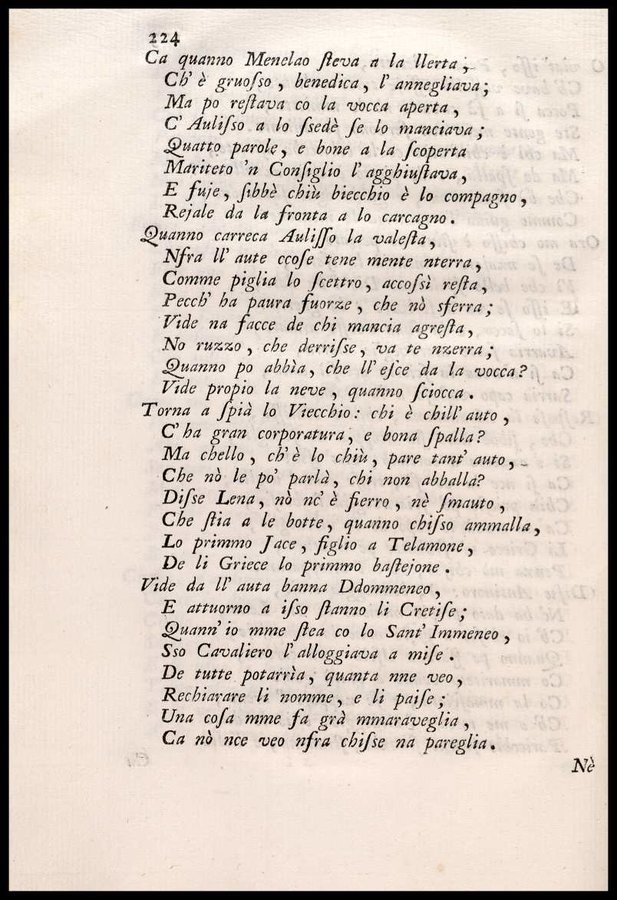 224
Ca quanno Menelao ſteva a la llerta;
Ch' è gruoſso, benedica, l' annegliava;
Ma po reſtava co la vocca aperta,
C' Auliſso a lo ſsedè ſe lo manciava;
Quatto parole, e bone a la ſcoperta
Mariteto 'n Conſiglio l' agghiuſtava,
E fuje, ſibbè chiù biecchio è lo compagno,
Rejale da la fronta a lo carcagno.
Quanno carreca Auliſſo la valeſta,
Nfra ll' aute ccoſe tene mente nterra,
Comme piglia lo ſcettro, accoſsì reſta,
Pecch' ha paura fuorze, che nò sferra;
Vide na facce de chi mancia agreſta,
No ruzzo, che derriſse, va te nzerra;
Quanno po abbìa, che ll' eſce da la vocca?
Vide propio la neve, quanno ſciocca.
Torna a ſpià lo Viecchio: chi è chill' auto,
C' ha gran corporatura, e bona ſpalla?
Ma chello, ch' è lo chiù, pare tant' auto,
Che nò le po' parlà, chi non abballa?
Diſse Lena, nò nc' è fierro, nè ſmauto,
Che ſtia a le botte, quanno chiſso ammalla,
Lo primmo Jace, figlio a Telamone,
De li Griece lo primmo baſtejone.
Vide da ll' auta banna Ddommeneo,
E attuorno a iſso ſtanno li Cretiſe;
Quann' io mme ſtea co lo Sant' Immeneo,
Sso Cavaliero l' alloggiava a miſe.
De tutte potarrìa, quanta nne veo,
Rechiarare li nomme, e li paiſe;
Una coſa mme fa grà mmaraveglia,
Ca nò nce veo nfra chiſse na pareglia.
Nè